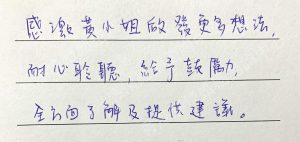 感激黃小姐啟發更多想法,
耐心聆聽,給予鼓勵,
全方面了解及提供建議。